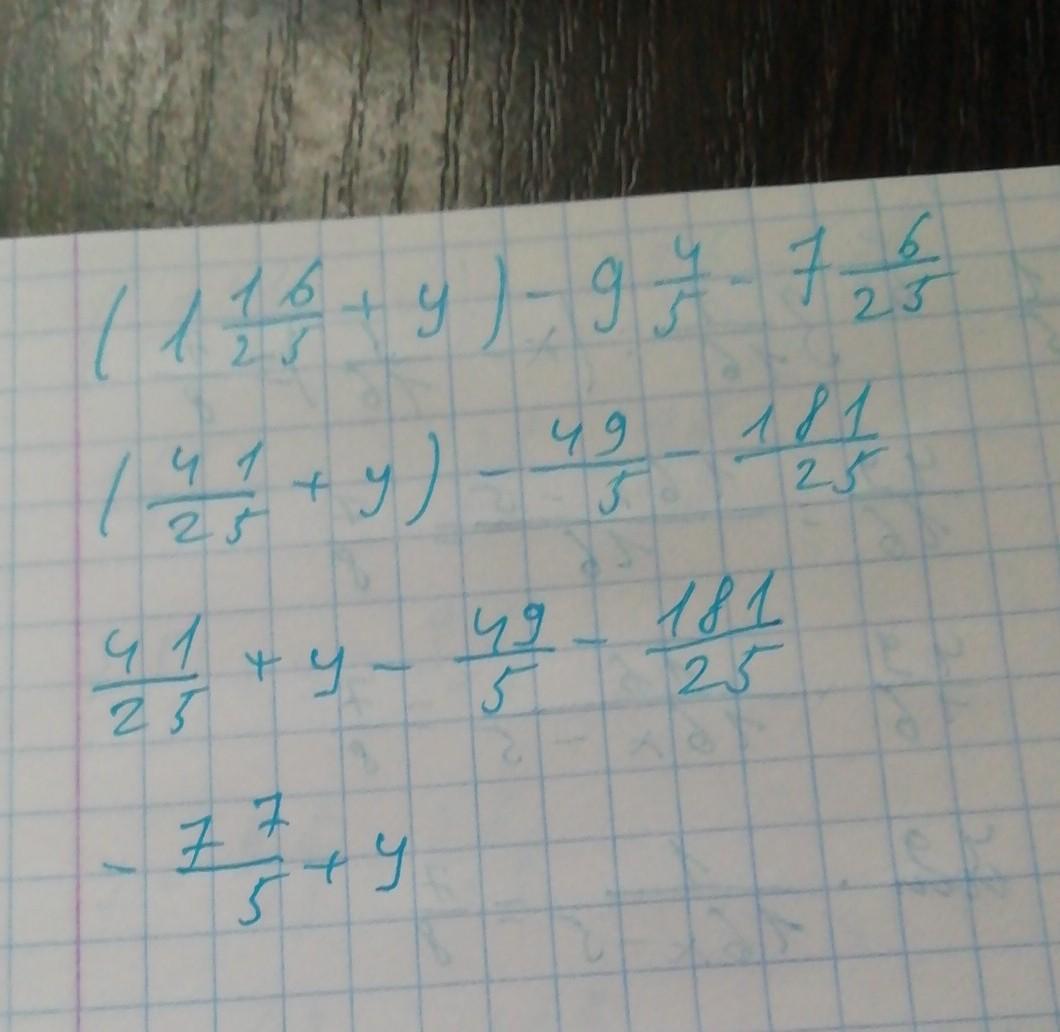 (1 16/25 + y) - 9 4/5 - 7 6/25
(41/25 + y) - 49/5 - 181/25
41/25 + y - 49/5 - 181/25
- 77/5 + y